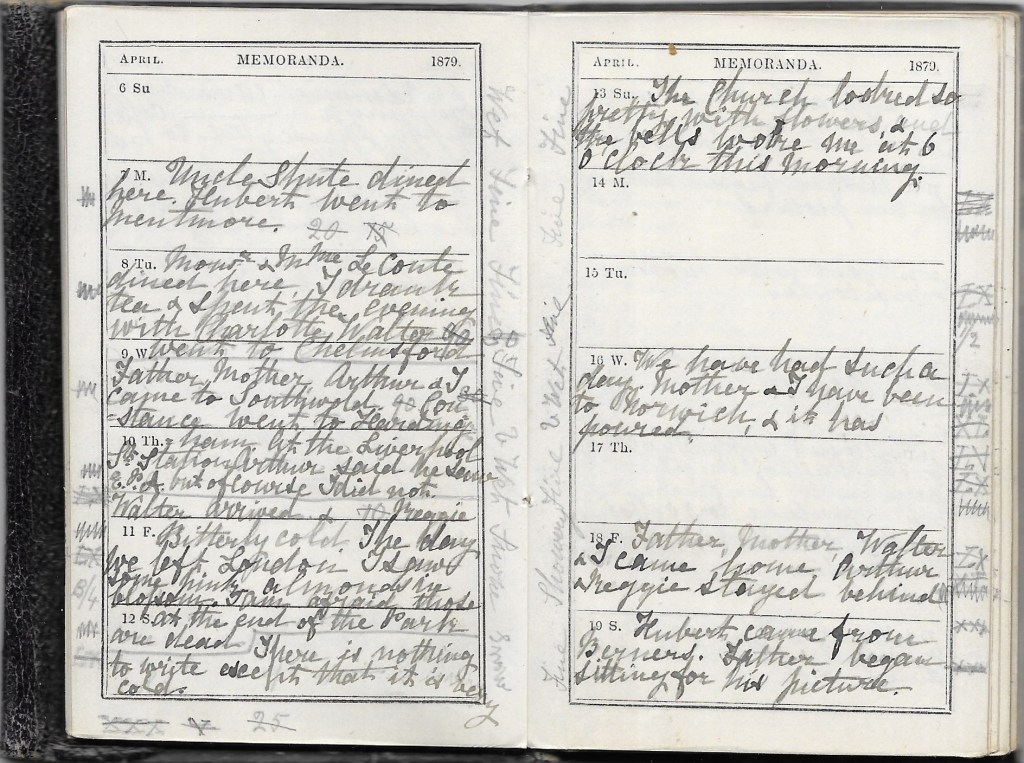 APRIL. MEMORANDA. 1879.
6 Su
7 M. Uncle Shute dined
here. Hubert went to
Mentmore. 20
8 Tu. Monsr & Mme Le Conte
dined here. I drank
tea & spent the evening
with Charlotte, Walter
9 W went to Chelmsford
Father, Mother, Arthur & I
came to Southwold. Con
-stance went to Harding
10 Th. -ham. At the Liverpool
St. Station Arthur said he saw
E.P.A. but of course I did not.
Walter arrived & Reggie
11 F. Bitterly cold. The day
we left London I saw
some pink almonds in
blossom. I am afraid those
12 S. at the end of the Park
are dead There is nothing
to write except that it is very
cold.
25
Wet Fine Fine Fine & Wet Snow Snow
APRIL. MEMORANDA. 1879.
13 Su. The Church looked so
pretty with flowers, and
the bells woke me at 6
O'Clock this morning.
14 M.
15 Tu.
16 W. We have had such a
day. Mother & I have been
to Norwich, & it has
poured.
17 Th.
18 F. Father, Mother, Walter
& I came home Arthur
& Reggie stayed behind
19 S. Hubert came from
Berners. Father began
sitting for his picture
Fine Showery Fine & Wet Fine Fine Fine